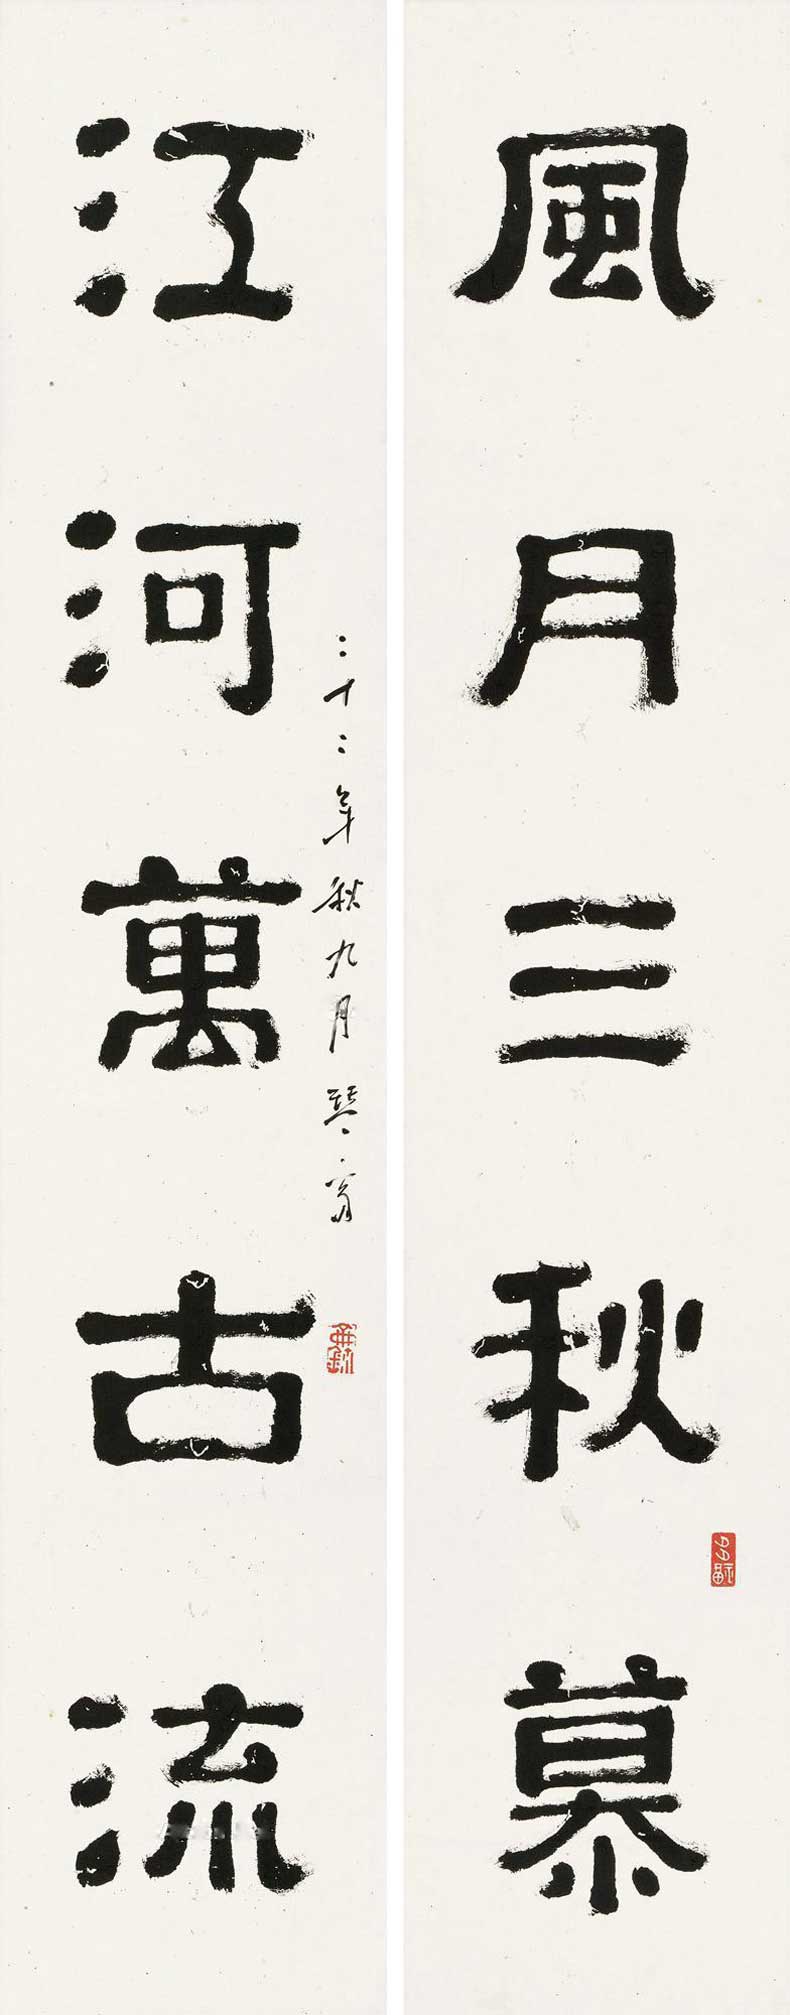 風月三秋慕
江河萬古流
二十二年秋九月琴齋